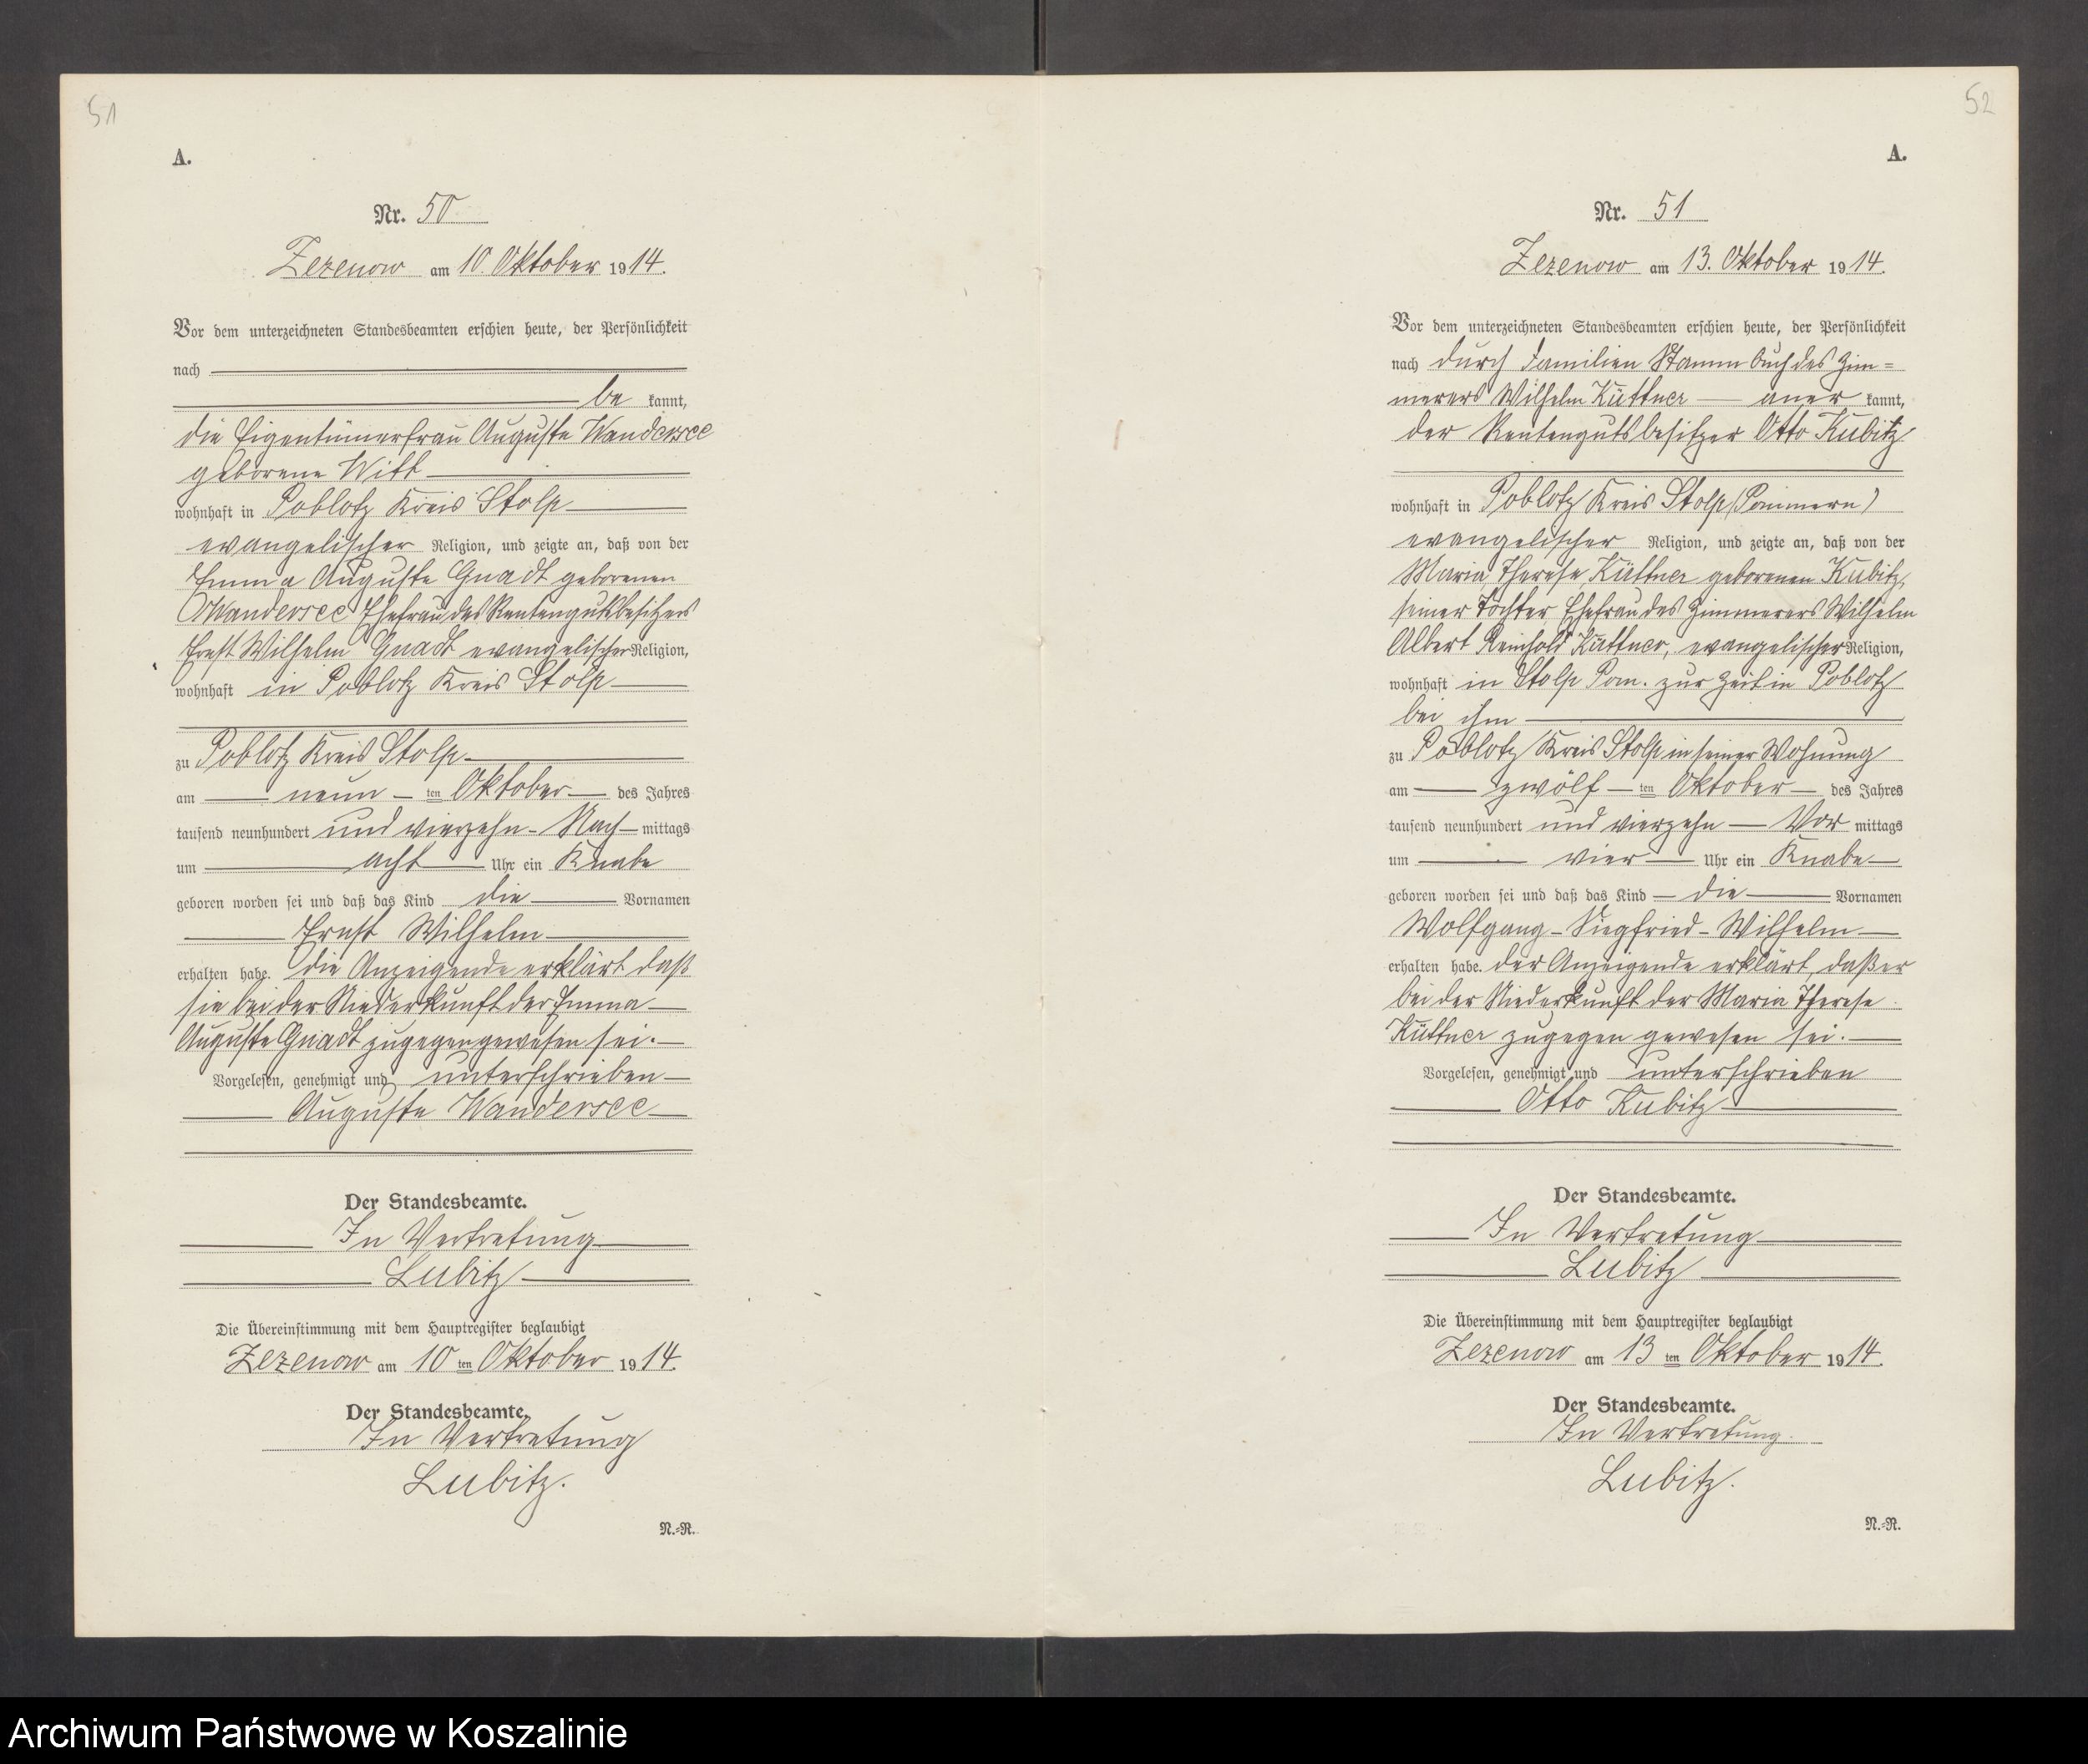 51
A.
Nr. 50
Zezenow am 10. Oktober 1914.
Vor dem unterzeichneten Standesbeamten erschien heute, der Persönlichkeit
nach
be kannt,
die Eigentümerfrau Auguste Wandersee
geborene Witt
wohnhaft in Poblotz Kreis Stolp
evangelischer Religion, und zeigte an, daß von der
Emma Auguste Gnadt geborenen
Wandersee Ehefrau des Rentengutsbesitzers
Ernst Wilhelm Gnadt evangelischer Religion,
wohnhaft in Poblotz Kreis Stolp
zu Poblotz Kreis Stolp
am neun ten Oktober des Jahres
tausend neunhundert und vierzehn Nach mittags
um acht Uhr ein Knabe
geboren worden sei und daß das Kind die Vornamen
Ernst Wilhelm
erhalten habe. Die Anzeigende erklärt daß
sie bei der Niederkunft der Emma
Auguste Gnadt zugegen gewesen sei.
Vorgelesen, genehmigt und unterschrieben
Auguste Wandersee
Der Standesbeamte.
In Vertretung
Lubitz
Die Übereinstimmung mit dem Hauptregister beglaubigt
Zezenow am 10 ten Oktober 1914.
Der Standesbeamte.
In Vertretung
Lubitz.
N.=R.
52
A.
Nr. 51
Zezenow am 13. Oktober 1914.
Vor dem unterzeichneten Standesbeamten erschien heute, der Persönlichkeit
nach durch Familien Stammbuch des Zim=
merers Wilhelm Küttner aner kannt,
der Rentengutsbesitzer Otto Kubitz
wohnhaft in Poblotz Kreis Stolp (Pommern)
evangelischer Religion, und zeigte an, daß von der
Maria Therese Küttner geborenen Kubitz,
seiner Tochter, Ehefrau des Zimmerers Wilhelm
Albert Reinhold Küttner, evangelischer Religion,
wohnhaft in Stolp Pom. zur Zeit in Poblotz
bei ihm
zu Poblotz Kreis Stolp in seiner Wohnung
am zwölf ten Oktober des Jahres
tausend neunhundert und vierzehn Vor mittags
um vier Uhr ein Knabe
geboren worden sei und daß das Kind die Vornamen
Wolfgang - Siegfried - Wilhelm
erhalten habe. Der Anzeigende erklärt, daß er
bei der Niederkunft der Maria Therese
Küttner zugegen gewesen sei.
Vorgelesen, genehmigt und unterschrieben
Otto Kubitz
Der Standesbeamte.
In Vertretung
Lubitz
Die Übereinstimmung mit dem Hauptregister beglaubigt
Zezenow am 13 ten Oktober 1914.
Der Standesbeamte.
In Vertretung.
Lubitz.
N.=R.
Archiwum Państwowe w Koszalinie